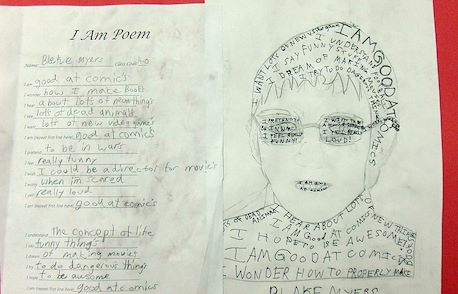 I Am Poem
Name: Blake myers
I am good at comics
I wonder how I make Books
I hear about lots of new things
I see lots of dead animals
I want lots of new video games
I am (repeat first line here) good at comics
I pretend to be in wars
I feel really funny
I wish I could be a director for movies
I worry when im scared
I cry really loud
I am (repeat first line here) good at comics
I understand the concept of life
I say funny things
I dream of making movies
I try to do dangerous things
I hope to be ausome
I am (repeat first line here) good at comics
I AM GOOD AT COMICS
I WANT LOTS OF NEW VIDEO
I UNDERSTAND
I SAY FUNNY
I DREAM OF MAKING
I TRY TO DO DANGEROUS
I PRETEND
IN WARS
I FEEL REALLY
FUNNY!
I WISH TO
LOUD!
I AM GOOD
AT COMICS
OF DEAD
ANIMALS
I HEAR ABOUT LOTS OF NEW THINGS
I AM GOOD AT COMICS
I HOPE TO BE AWESOME
I AM GOOD AT COMICS
I WONDER HOW TO PROPERLY MAKE
BOOKS
BLAKE MYERS